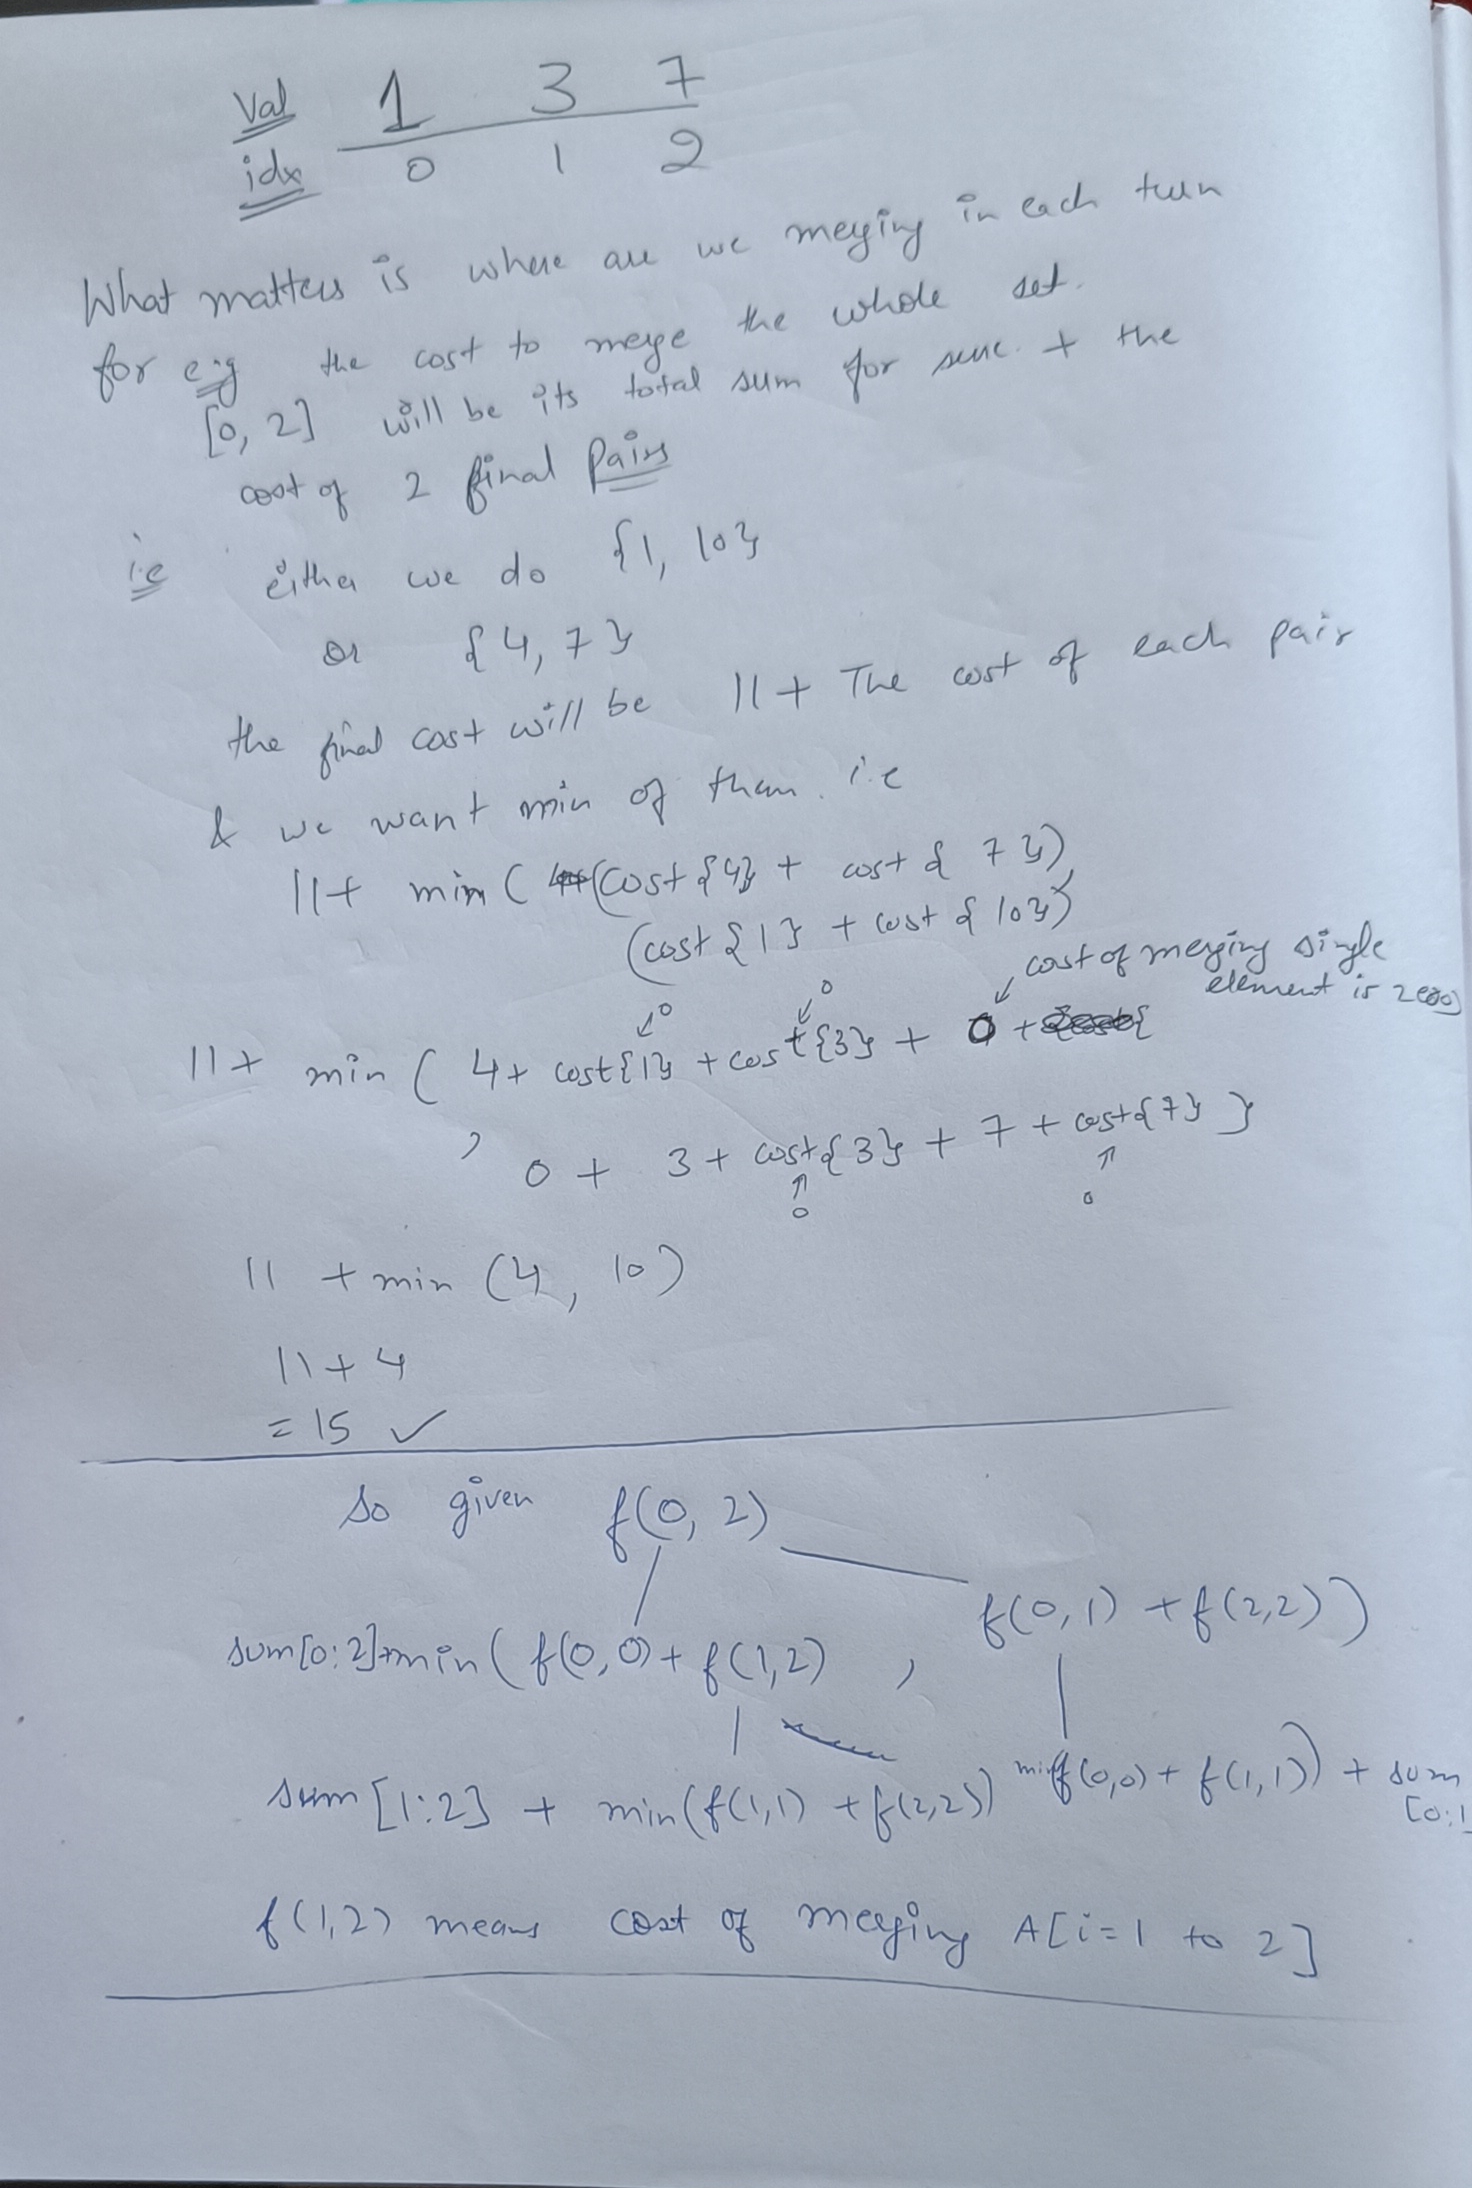 Val 1 3 7
idx 0 1 2
What matters is where are we merging in each turn
for eg the cost to merge the whole set.
[0, 2] will be its total sum for sure. + the
cost of 2 final Pairs
i.e either we do {1, 10}
or {4, 7}
the final cost will be 11 + The cost of each pair
& we want min of them. i.e
11 + min ( (cost {4} + cost {7}),
(cost {1} + cost {10})
cost of merging single
element is zero
0 0
11 + min ( 4 + cost{1} + cost{3} + 0 +
, 0 + 3 + cost{3} + 7 + cost{7} }
0 0
11 + min (4, 10)
11 + 4
= 15 ✓
So given f(0, 2)
f(0,1) + f(2,2))
sum[0:2]+min ( f(0,0) + f(1,2) ,
sum [1:2] + min(f(1,1) + f(2,2)) min(f(0,0) + f(1,1)) + sum
[0:1
f(1,2) means cost of merging A[i=1 to 2]